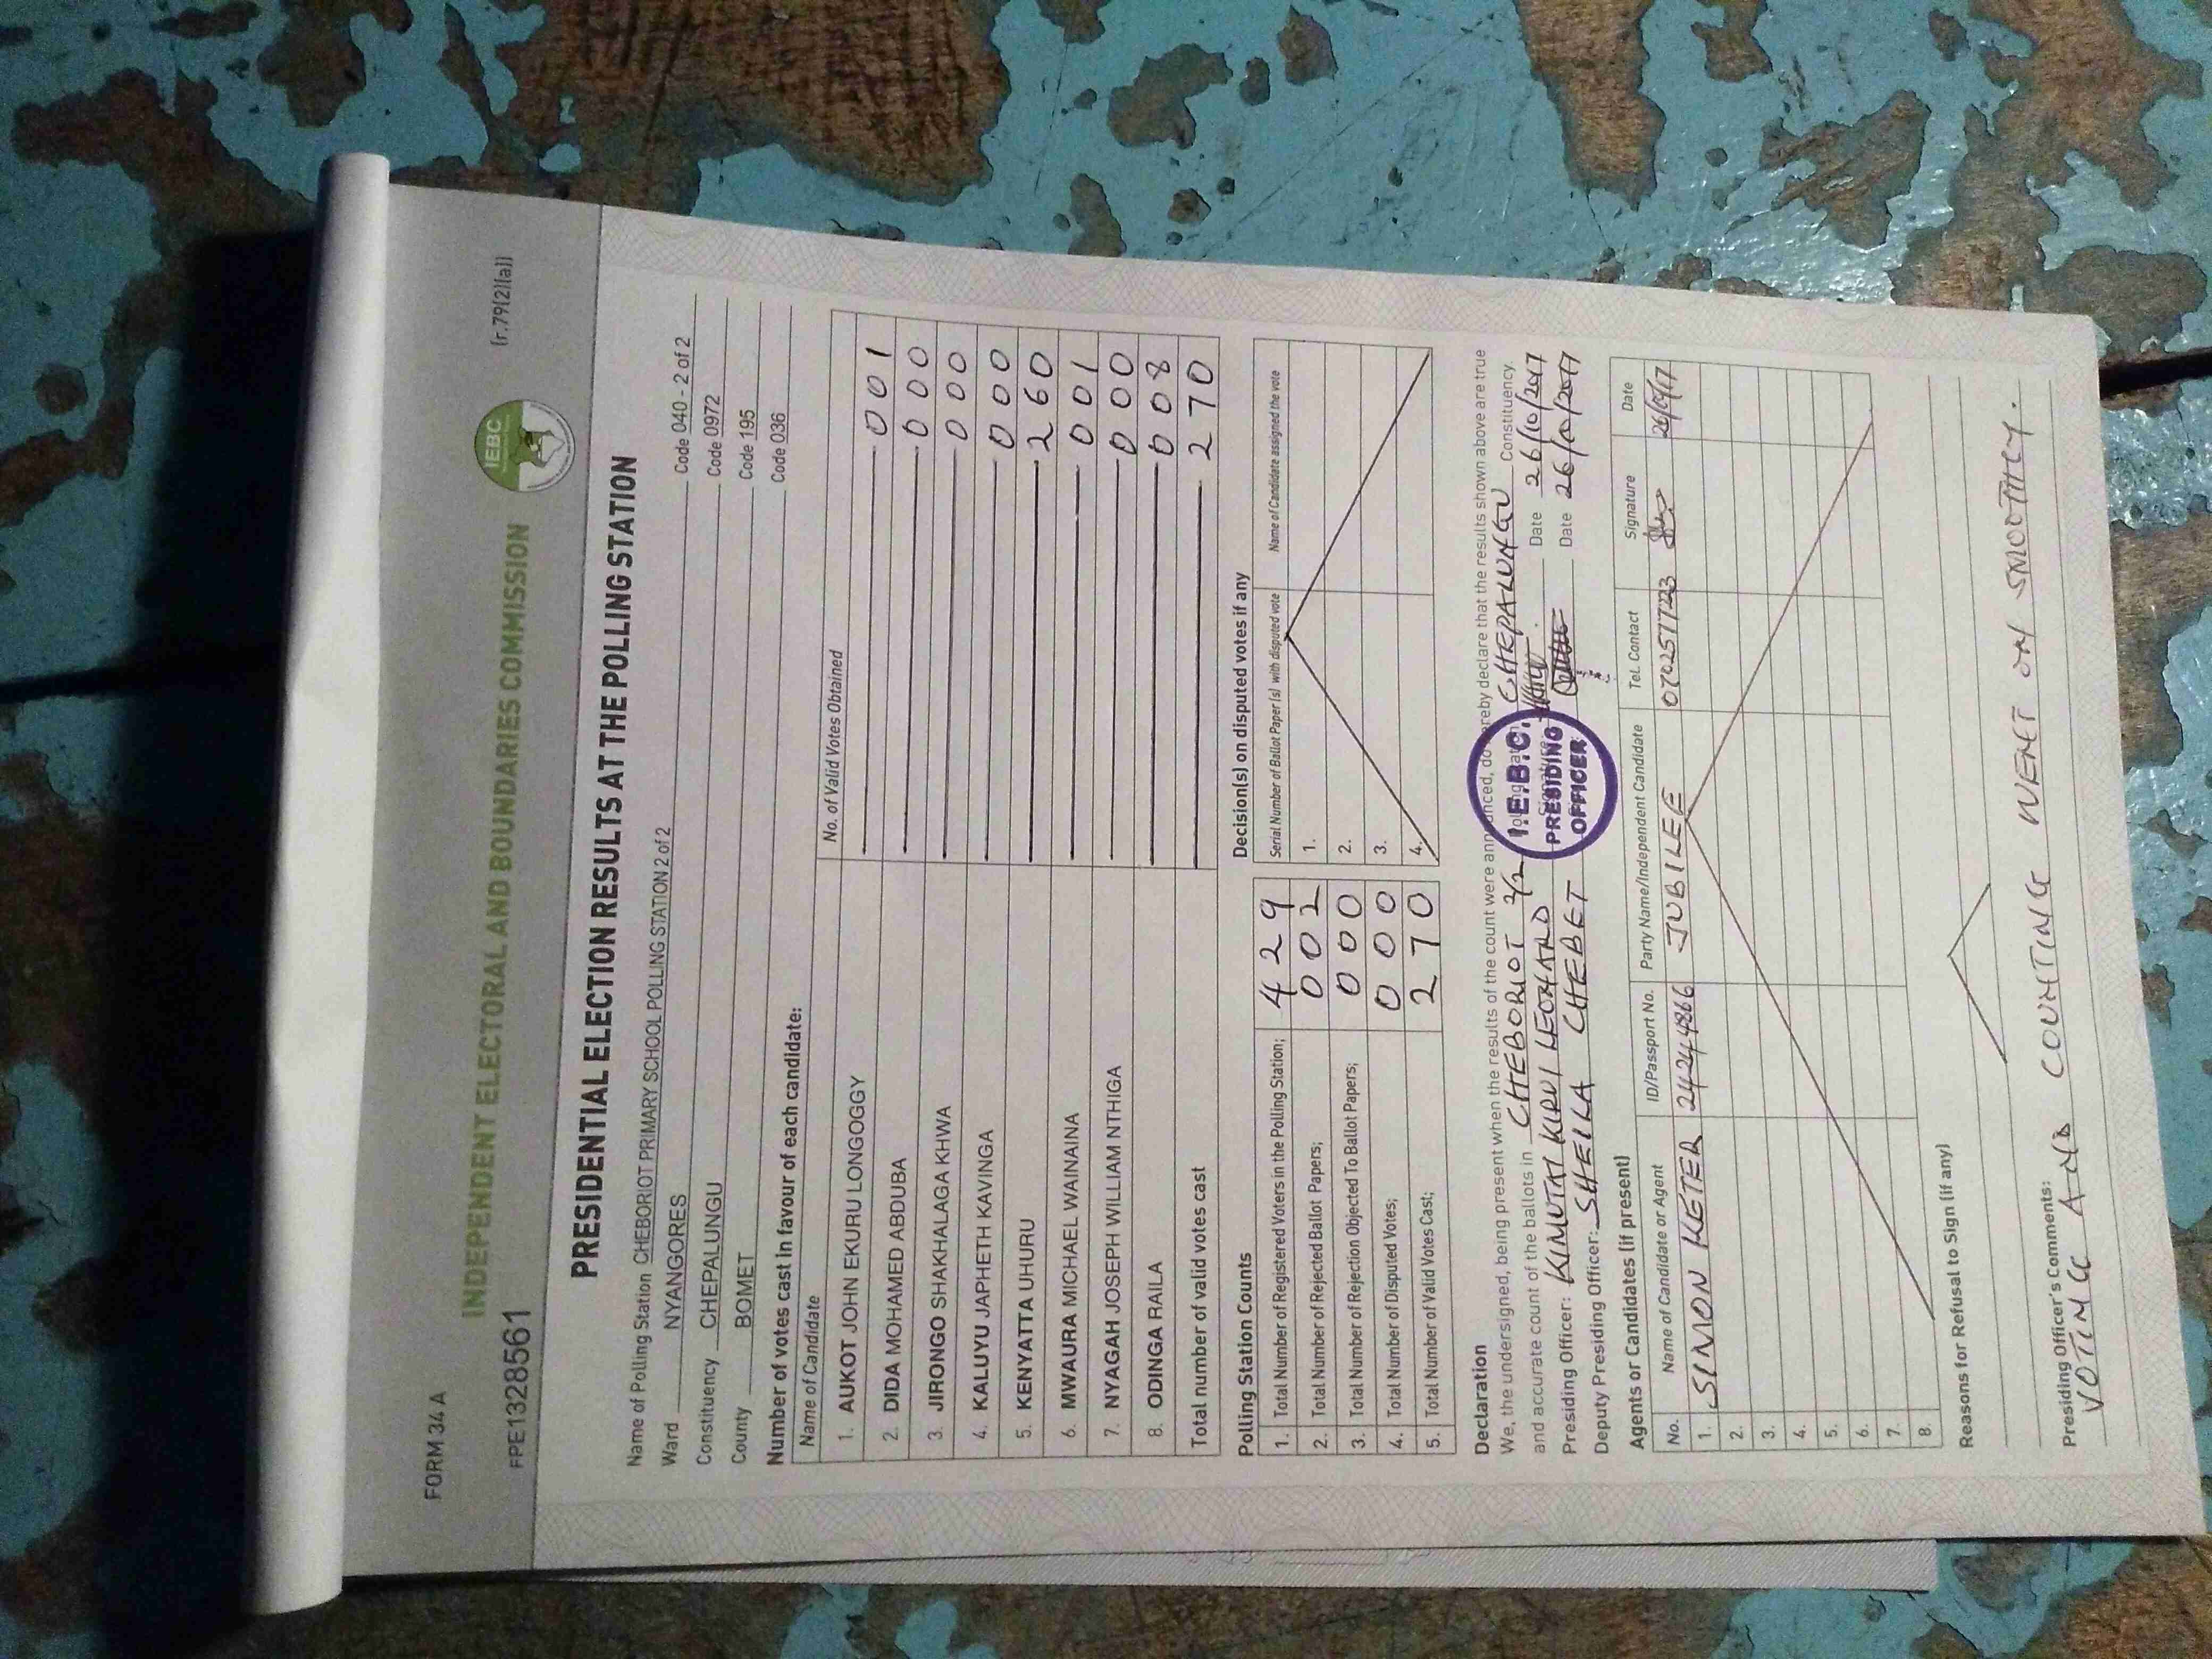 FORM 34 A
(r.79(2)(a))
INDEPENDENT ELECTORAL AND BOUNDARIES COMMISSION
IEBC
FPE1328561
PRESIDENTIAL ELECTION RESULTS AT THE POLLING STATION
Name of Polling Station CHEBORIOT PRIMARY SCHOOL POLLING STATION 2 of 2 Code 040 - 2 of 2
Ward NYANGORES Code 0972
Constituency CHEPALUNGU Code 195
County BOMET Code 036
Number of votes cast in favour of each candidate:
Name of Candidate No. of Valid Votes Obtained
1. AUKOT JOHN EKURU LONGOGGY 001
2. DIDA MOHAMED ABDUBA 000
3. JIRONGO SHAKHALAGA KHWA 000
4. KALUYU JAPHETH KAVINGA 000
5. KENYATTA UHURU 260
6. MWAURA MICHAEL WAINAINA 001
7. NYAGAH JOSEPH WILLIAM NTHIGA 000
8. ODINGA RAILA 008
Total number of valid votes cast 270
Polling Station Counts
1. Total Number of Registered Voters in the Polling Station; 429
2. Total Number of Rejected Ballot Papers; 002
3. Total Number of Rejection Objected To Ballot Papers; 000
4. Total Number of Disputed Votes; 000
5. Total Number of Valid Votes Cast; 270
Decision(s) on disputed votes if any
Serial Number of Ballot Paper(s) with disputed vote Name of Candidate assigned the vote
1.
2.
3.
4.
Declaration
We, the undersigned, being present when the results of the count were announced, do hereby declare that the results shown above are true
and accurate count of the ballots in CHEBORIOT 2/2 CHEPALUNGU Constituency.
Presiding Officer: KIMUTAI KIRUI LEONARD Date 26/10/2017
Deputy Presiding Officer: SHEILA CHEBET Date 26/10/2017
I.E.B.C.
PRESIDING
OFFICER
Agents or Candidates (if present)
No. Name of Candidate or Agent ID/Passport No. Party Name/Independent Candidate Tel. Contact Signature Date
1. SIMON KETER 24244866 JUBILEE 0702577723
2.
3.
4.
5.
6.
7.
8.
Reasons for Refusal to Sign (if any)
Presiding Officer's Comments:
VOTING AND COUNTING WENT ON SMOOTHLY.